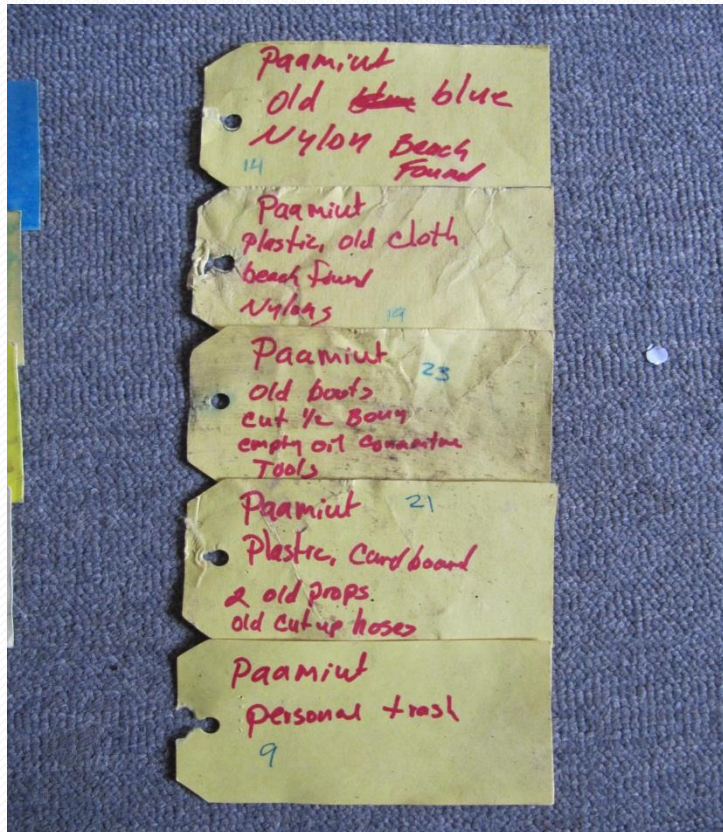 Paamiut
old blue
Nylon Beach
Found
14
Paamiut
plastic, old cloth
beach found
Nylons
19
Paamiut
23
old boots
cut 1/2
empty oil
Tools
Paamiut
21
Plastic, Cardboard
2 old props.
old cut up hoses
Paamiut
personal trash
9